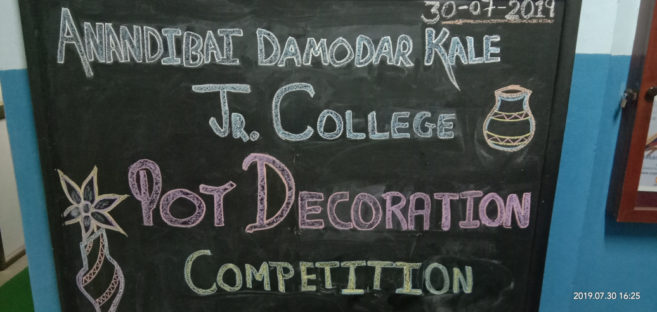 30-07-2019
ANANDIBAI DAMODAR KALE
JR. COLLEGE
POT DECORATION
COMPETITION
2019.07.30 16:25